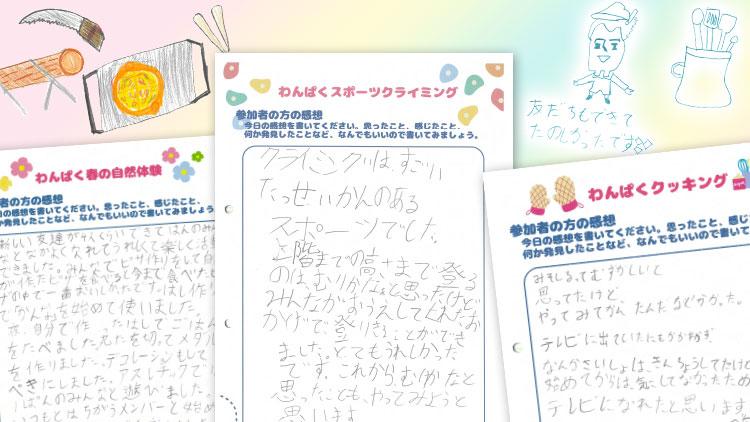 友だちもできて
たのしかったです
わんぱく春の自然体験
者の方の感想
の感想を書いてください。思ったこと、感じたこと、
か発見したことなど、なんでもいいので書いてみましょう
新しい友達が
てはんのみん
なとなかよくなれてうれしくて楽しく活動
できました。みんなでピザ作りをして自
が作ったピザを食べると今まで食べたピ
ザの中で一番おいしかったです。はし作り
でかんなを始めて使いました。
自分で作ったはしでごはん
をたべました。丸太を切ってメダル
を作りました。デコレーションもして
きにしました。アスレチックで
はんのみんなと遊びました。
いつもとちがうメンバーと始め
わんぱくスポーツクライミング
参加者の方の感想
今日の感想を書いてください。思ったこと、感じたこと、
何か発見したことなど、なんでもいいので書いてみましょう。
クライミングは、すごい
たっせいかんのある
スポーツでした。
2階までの高さまで登る
のはむりかなぁと思ったけど
みんながおうえんしてくれたお
かげで、登りきることができ
ました。とてもうれしかった
です。これから、むりかなと
思ったことも、やってみようと
思います
わんぱくクッキング
参加者の方の感想
今日の感想を書いてください。思ったこと、感じ
何か発見したことなど、なんでもいいので書いて
みそしるってむずかしいって
思ってたけど、
やってみてかんたんだなとわかった。
テレビに出ていた
なんかさいしょは、きんちょうしてたけど
始めてからは、気にしてなかったため
テレビになれたと思います